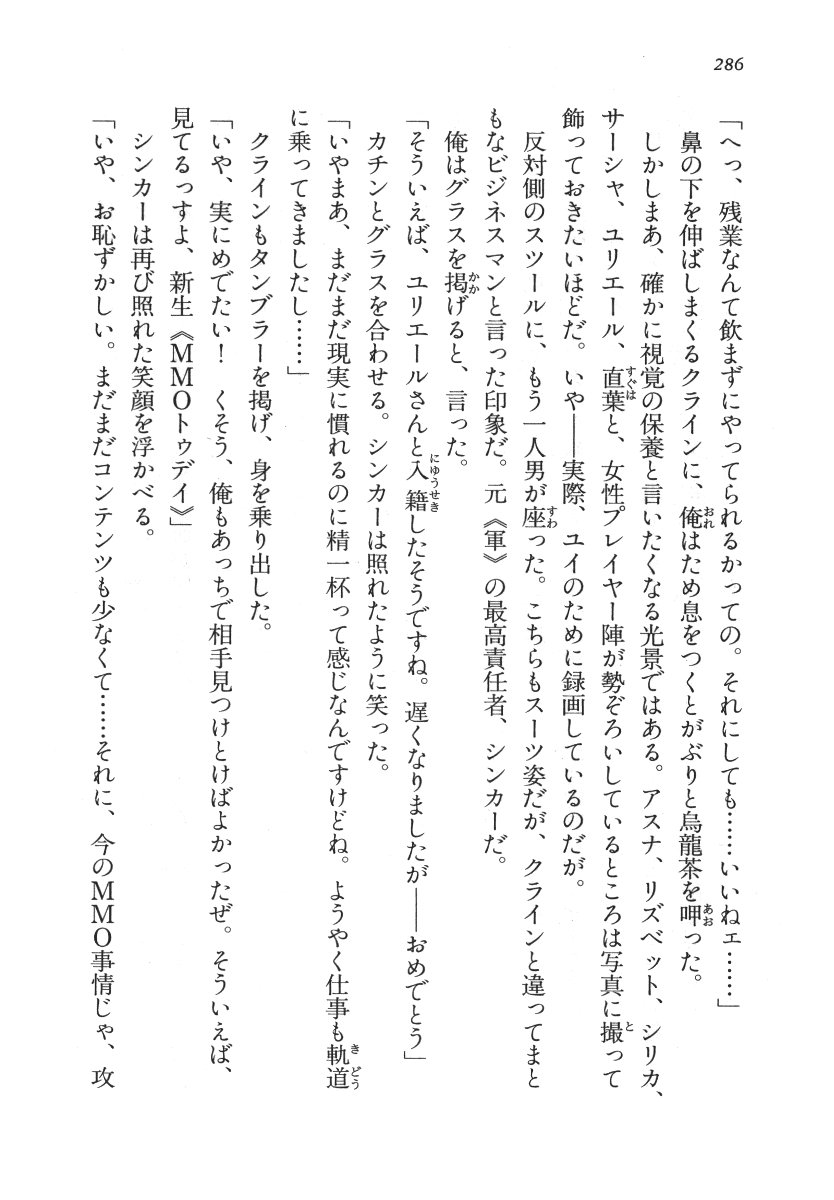 286
「へっ、残業なんて飲まずにやってられるかっての。それにしても……いいねェ……」
鼻の下を伸ばしまくるクラインに、俺はため息をつくとがぶりと烏龍茶を呷った。
しかしまあ、確かに視覚の保養と言いたくなる光景ではある。アスナ、リズベット、シリカ、
サーシャ、ユリエール、直葉と、女性プレイヤー陣が勢ぞろいしているところは写真に撮って
飾っておきたいほどだ。いや――実際、ユイのために録画しているのだが。
反対側のスツールに、もう一人男が座った。こちらもスーツ姿だが、クラインと違ってまと
もなビジネスマンと言った印象だ。元《軍》の最高責任者、シンカーだ。
俺はグラスを掲げると、言った。
「そういえば、ユリエールさんと入籍したそうですね。遅くなりましたが――おめでとう」
カチンとグラスを合わせる。シンカーは照れたように笑った。
「いやまあ、まだまだ現実に慣れるのに精一杯って感じなんですけどね。ようやく仕事も軌道
に乗ってきましたし……」
クラインもタンブラーを掲げ、身を乗り出した。
「いや、実にめでたい！　くそう、俺もあっちで相手見つけとけばよかったぜ。そういえば、
見てるっすよ、新生《ＭＭＯトゥデイ》」
シンカーは再び照れた笑顔を浮かべる。
「いや、お恥ずかしい。まだまだコンテンツも少なくて……それに、今のＭＭＯ事情じゃ、攻